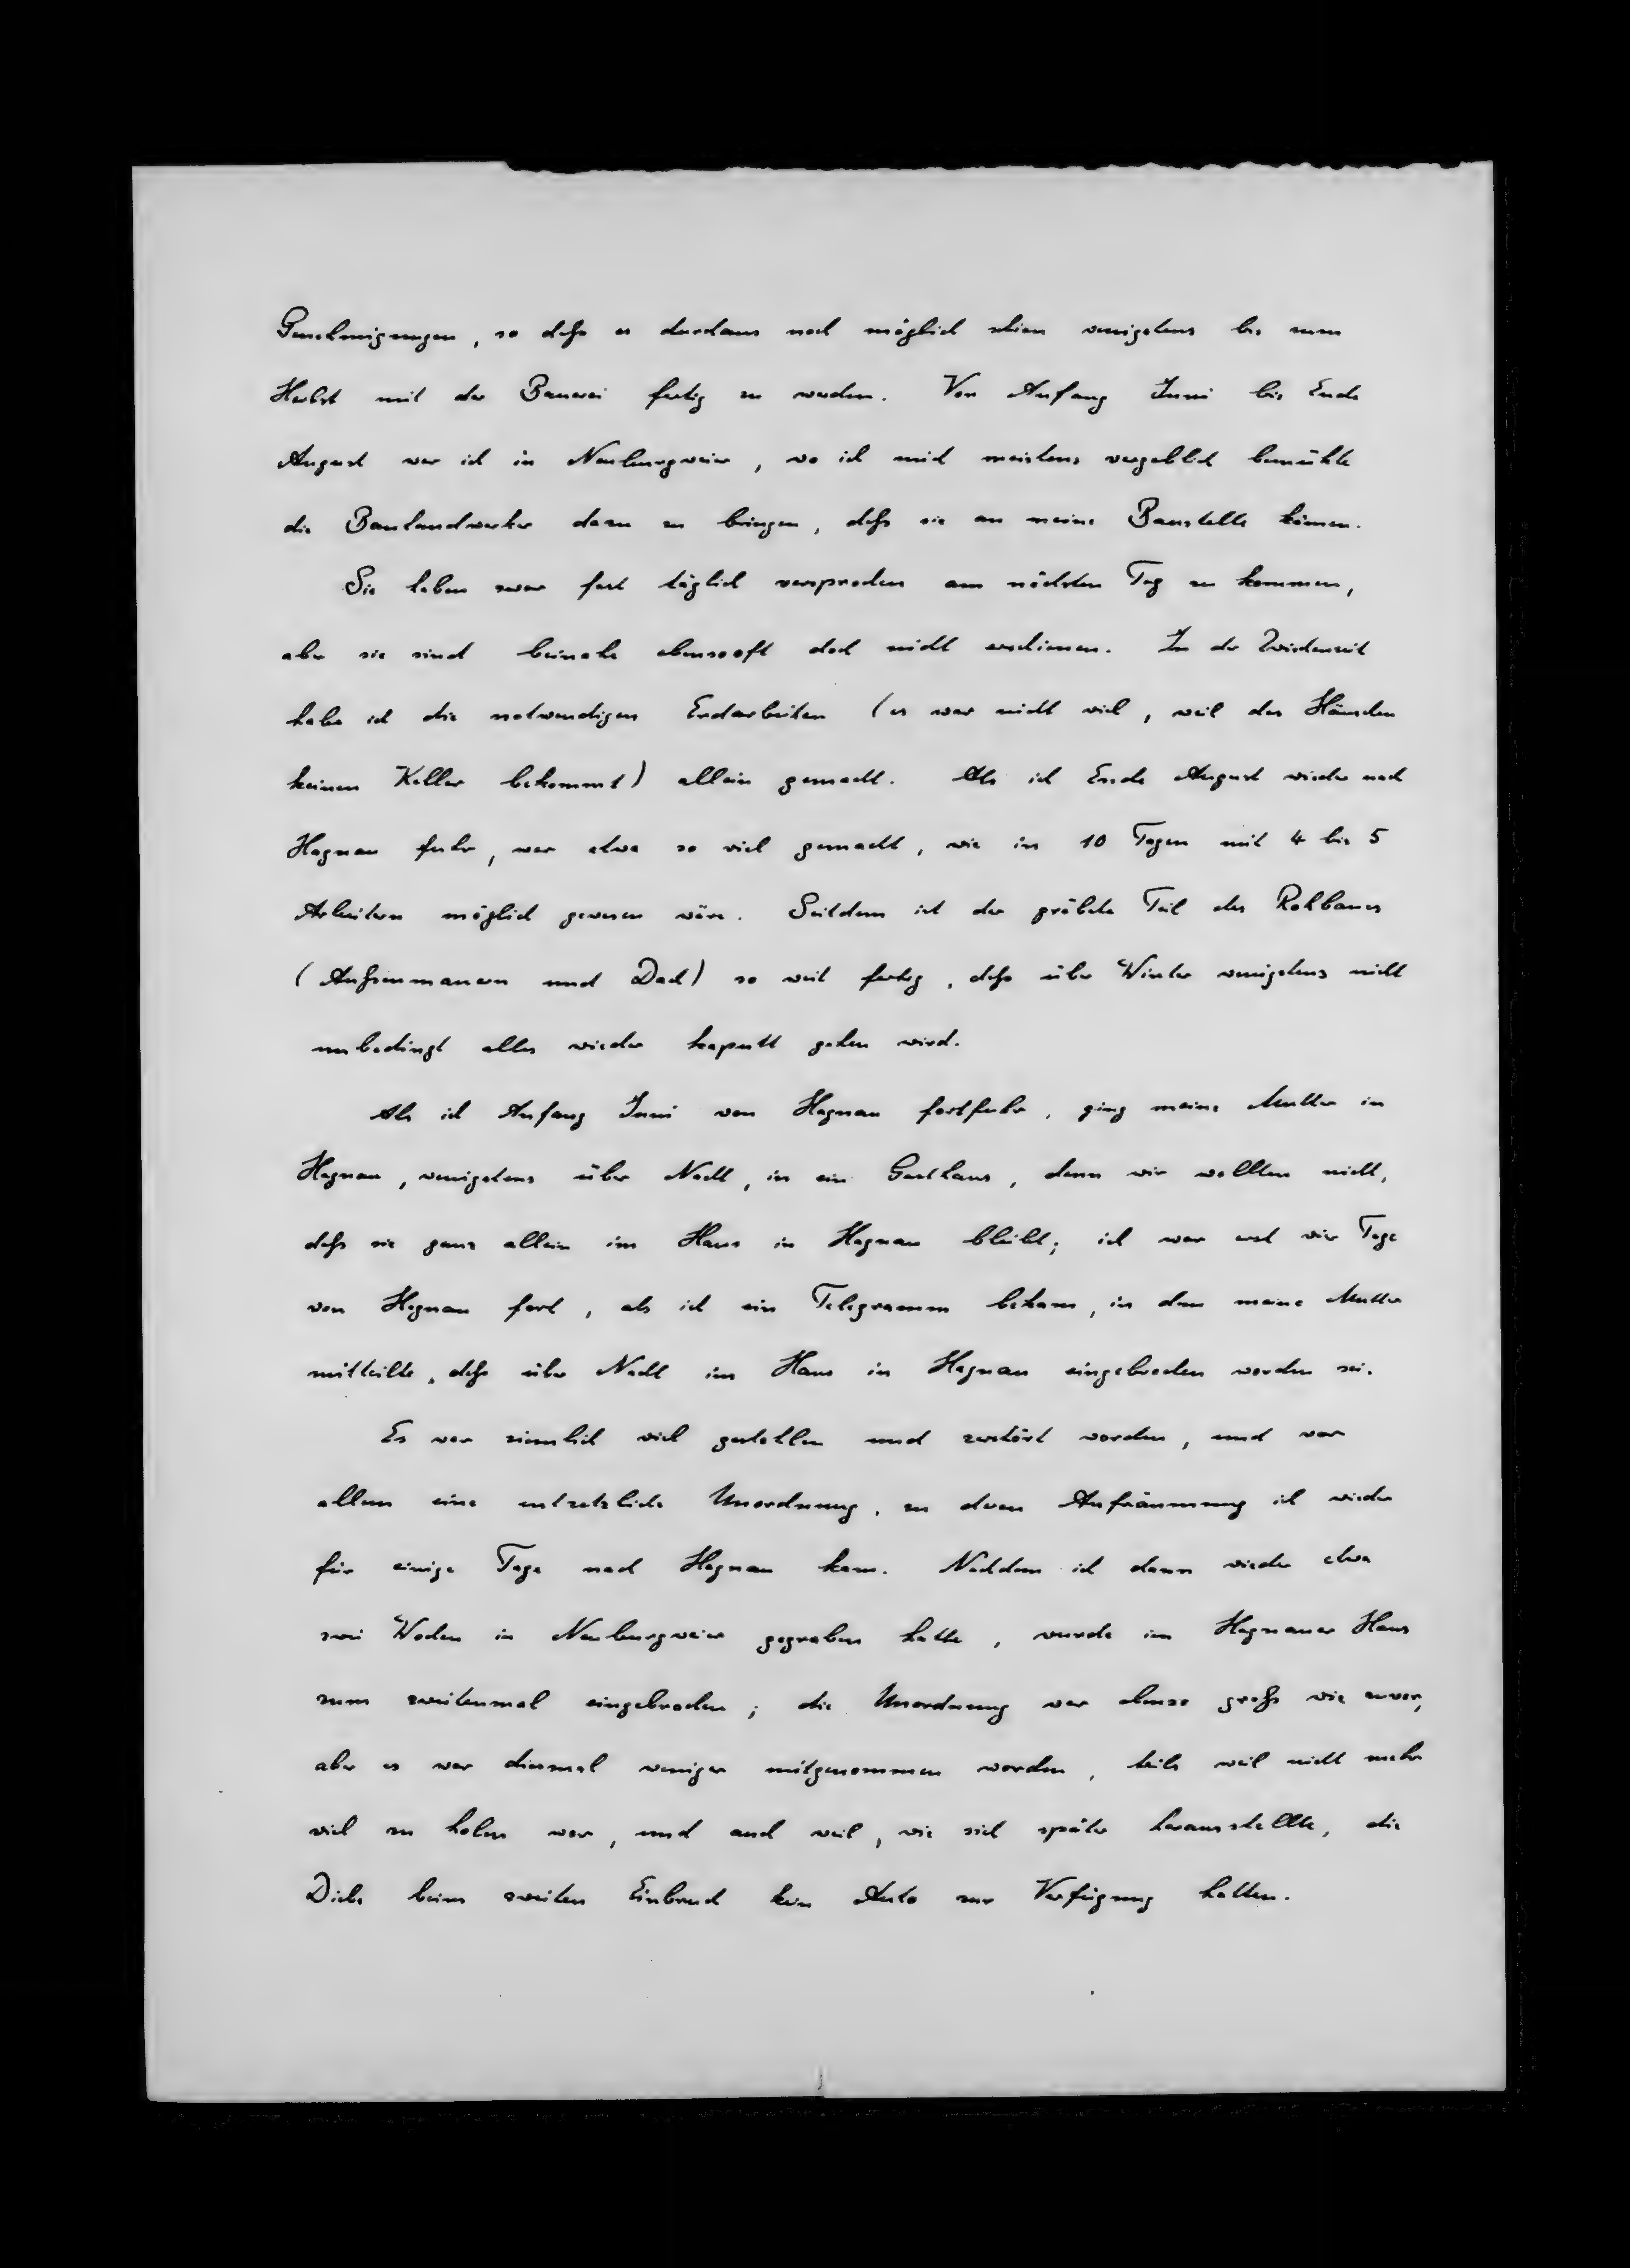 Genehmigungen, so daß es durchaus noch möglich schien wenigstens bis zum
Herbst mit der Bauerei fertig zu werden. Von Anfang Juni bis Ende
August war ich in Neuburgweier, wo ich mich meistens vergeblich bemühte
die Bauhandwerker dazu zu bringen, daß sie an meine Baustelle kämen.
Sie haben zwar fast täglich versprochen am nächsten Tag zu kommen,
aber sie sind beinahe ebensooft doch nicht erschienen. In der Zwischenzeit
habe ich die notwendigen Erdarbeiten (es war nicht viel, weil das Häuschen
keinen Keller bekommt) allein gemacht. Als ich Ende August wieder nach
Hagnau fuhr, war etwa so viel gemacht, wie in 10 Tagen mit 4 bis 5
Arbeitern möglich gewesen wäre. Seitdem ist der größte Teil des Rohbaues
(Außenmauern und Dach) so weit fertig, daß über Winter wenigstens nicht
unbedingt alles wieder kaputt gehen wird.
Als ich Anfang Juni von Hagnau fortfuhr, ging meine Mutter in
Hagnau, wenigstens über Nacht, in ein Gasthaus, denn wir wollten nicht,
daß sie ganz allein im Haus in Hagnau bleibt; ich war erst vier Tage
von Hagnau fort, als ich ein Telegramm bekam, in dem meine Mutter
mitteilte, daß über Nacht im Haus in Hagnau eingebrochen worden sei.
Es war ziemlich viel gestohlen und zerstört worden, und vor
allem eine entsetzliche Unordnung, zu deren Aufräumung ich wieder
für einige Tage nach Hagnau kam. Nachdem ich dann wieder etwa
zwei Wochen in Neuburgweier gegraben hatte, wurde im Hagnauer Haus
zum zweitenmal eingebrochen; die Unordnung war ebenso groß wie zuvor,
aber es war diesmal weniger mitgenommen worden, teils weil nicht mehr
viel zu holen war, und auch weil, wie sich später herausstellte, die
Diebe beim zweiten Einbruch kein Auto zur Verfügung hatten.